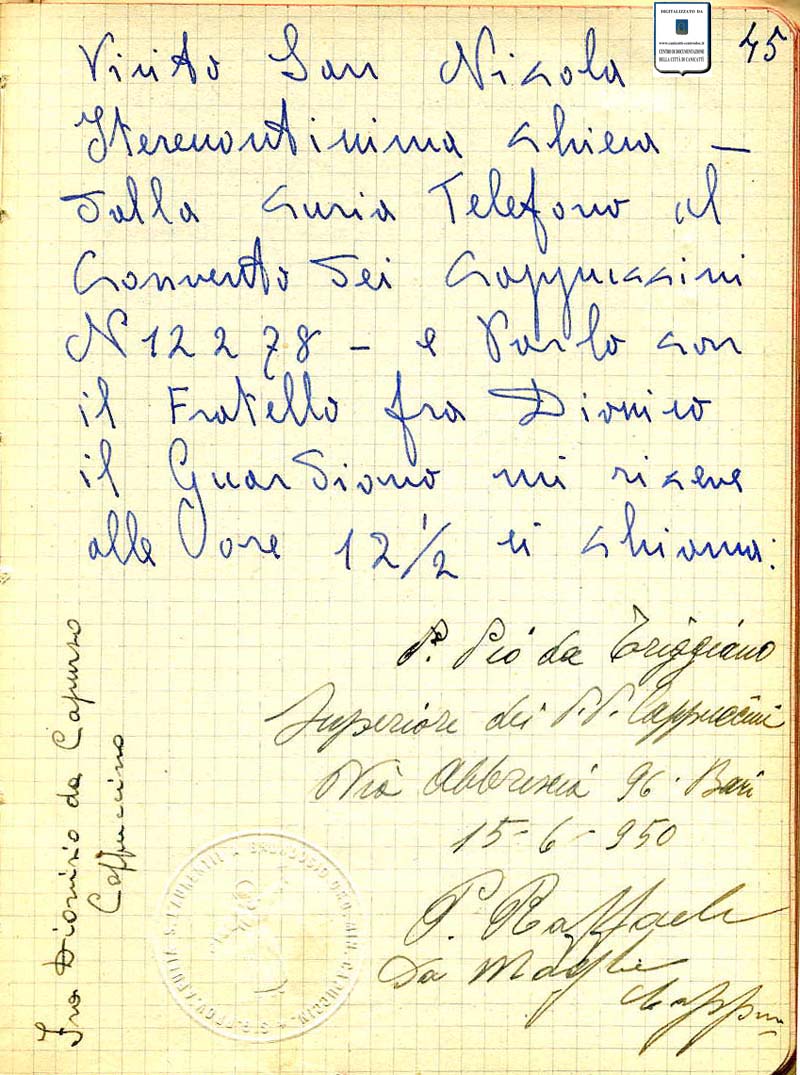 DIGITALIZZATO DA
www.canicatti-centrodoc.it
CENTRO DI DOCUMENTAZIONE
DELLA CITTÀ DI CANICATTÌ
45
Visito San Nicola
chiesa –
Dalla curia Telefono al
Convento dei Cappuccini
N 12278 – e Parlo con
il Fratello fra Dionisio
il Guardiano mi riceve
alle ore 12 1/2 si chiama:
P. Pio da Triggiano
Superiore dei P.P. Cappuccini
Via Abbrescia 96. Bari
15-6-950
P. Raffaele
Da Maglie
Capp
Fra Dionisio da Capurso
Cappuccino